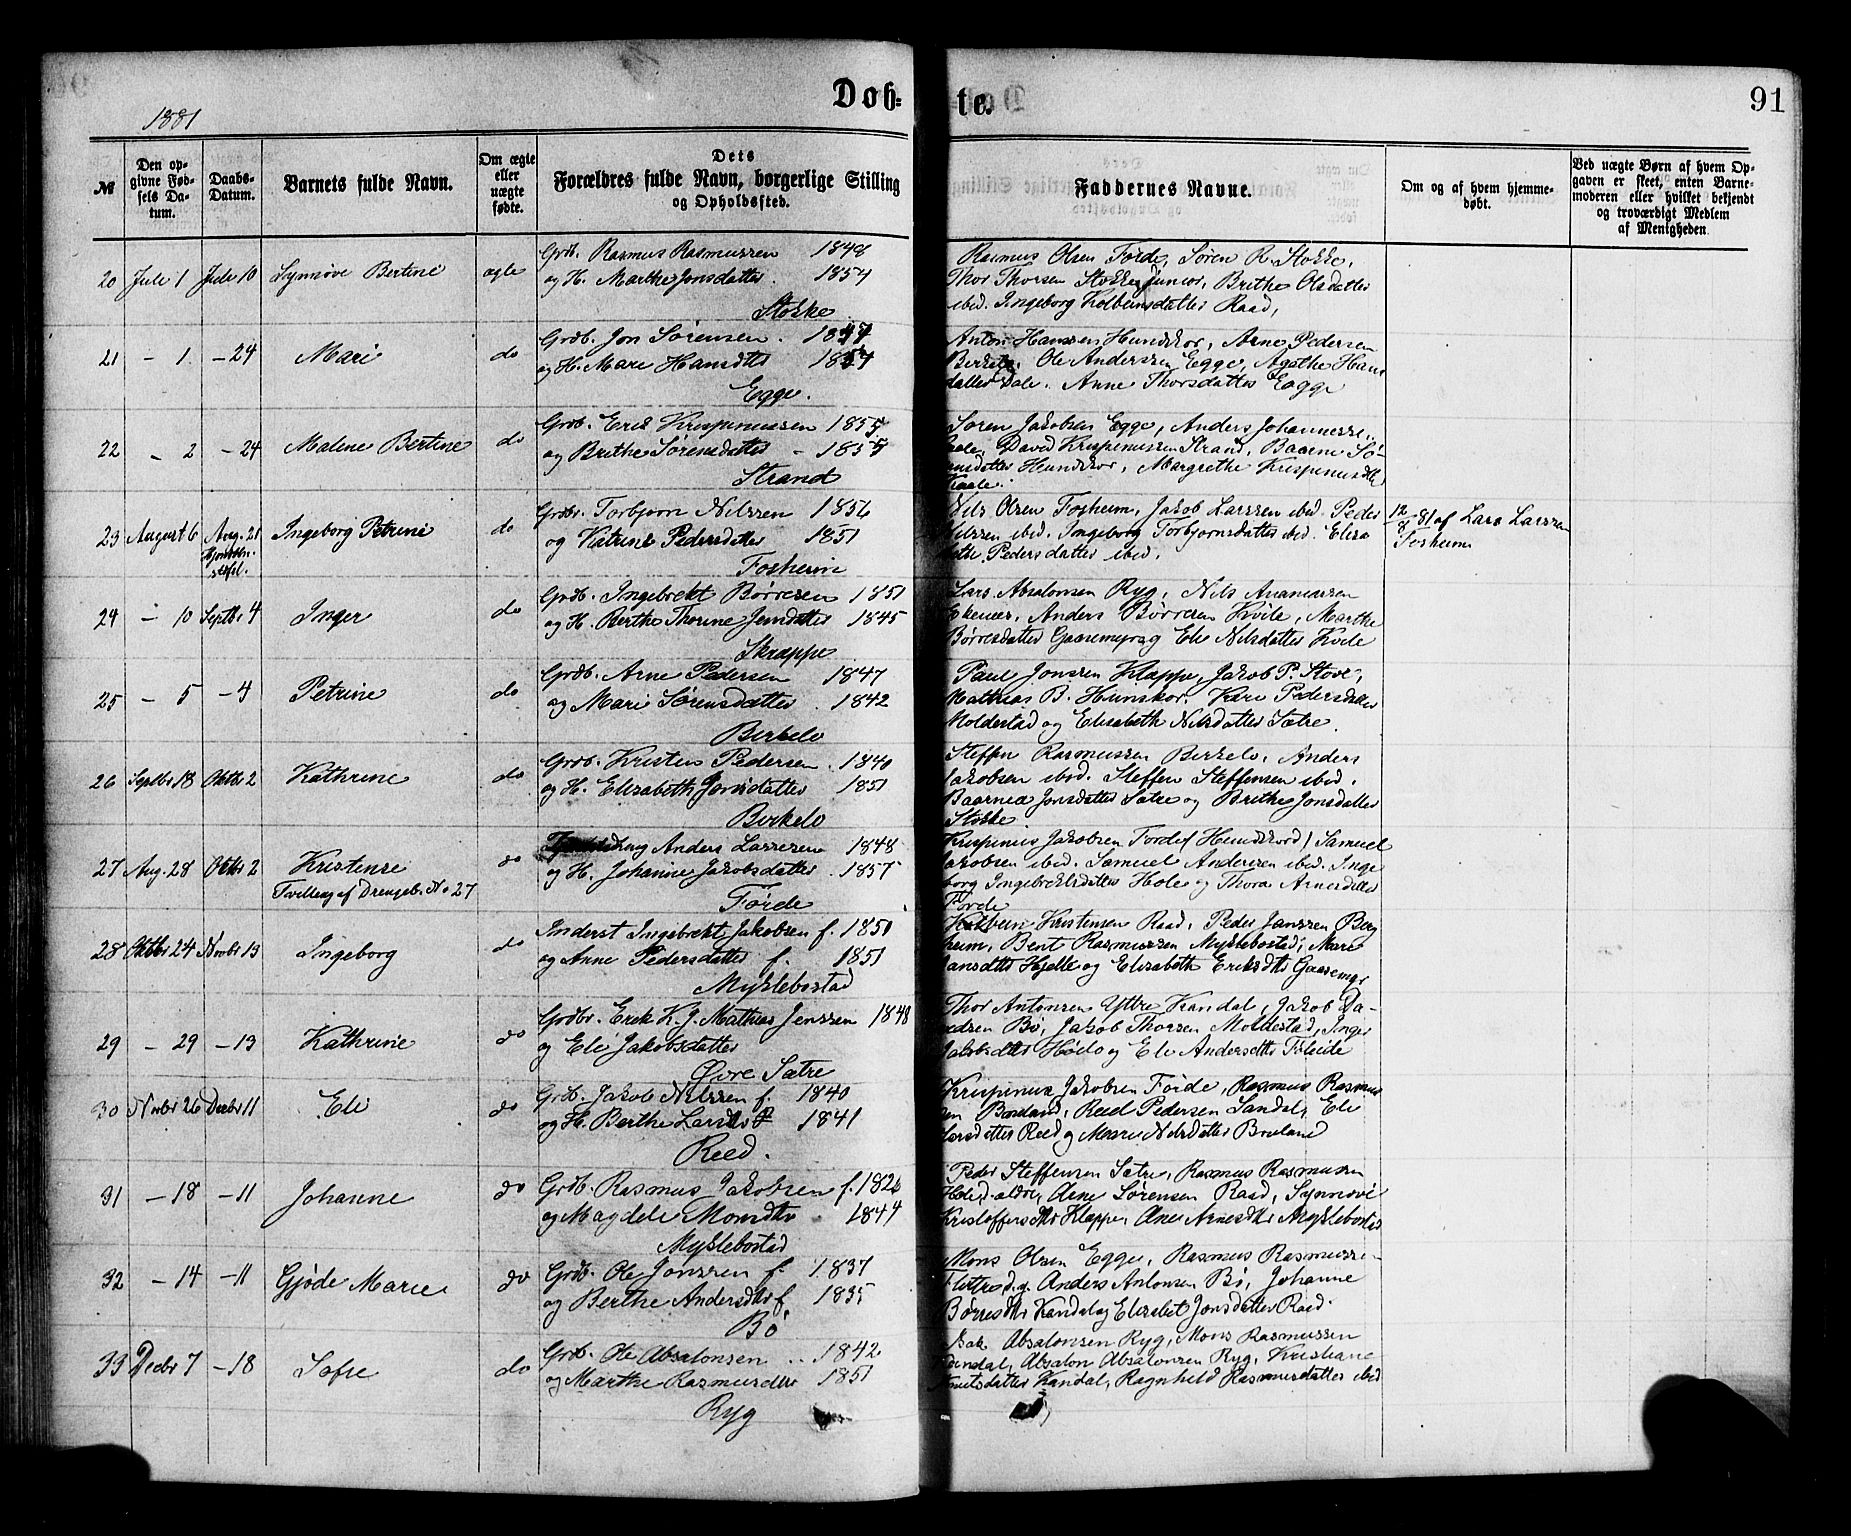 Døb-
te.
91
1881
№
Den op-
givne Fød-
sels Da-
tum.
Daabs-
Datum.
Barnets fulde Navn.
Om ægte
eller
uægte
fødte.
Dets
Forældres fulde Navn, borgerlige Stilling
og Opholdssted.
Faddernes Navne.
Om og af hvem hjemme-
døbt.
Ved uægte Børn af hvem Op-
gaven er skeet, enten Barne-
moderen eller hvilket bekjendt
og troværdigt Medlem
af Menigheden.
20 Juli 1 Juli 10 Synnøve Bertine ægte
Grdb. Rasmus Rasmussen 1848
og H. Marthe Jonsdatter 1854
Stokke
Rasmus Olsen Førde, Søren R. Stokke,
Thor Thorsen Stokke junior, Brithe Olsdatter
ibid. Ingeborg Kolbeinsdatter Raad,
21 - 1. - 24 Mari do
Grdb. Jon Sørensen
og H. Mari Hansdtr
Egge.
Anton Hanssen Hundskor, Arne Pedersen
Birkelo, Ole Anderssen Egge, Agathe Hans
datter Dale. Anne Thorsdatter Egge
22 - 2 - 24 Malene Bertine do
Grdb. Erik Krispinussen 1855
og Brithe Sørensdatter - 1855
Strand
Søren Jakobsen Egge, Anders Johannesse
David Krispinussen Strand, Baarne Sø-
rensdatter Hundskor, Margrethe Krispinusdtr
23 August 6 Aug. 21 Ingeborg Petrine do
stfsl.
Grdbr. Torbjørn Nilssen 1856
og Katrine Pedersdatter 1851
Fosheim
Nils Olsen Fosheim, Jakob Larssen ibid. Peder
Nilssen ibid. Ingeborg Torbjørnsdatter ibid. Elisa
beth Pedersdatter ibid.
12/8 81 af Lars Larssen
Fosheim
24 - 10 Septbr 4 Inger do
Grdb. Ingebrekt Børresen 1851
og H. Berthe Thorine Jensdatter 1845
Skrappe
Lars Absalonsen Ryg, Nils Ananiassen
Anders Børresen Kvile, Marthe
Børresdatter Gaasemyr og Eli Nilsdatter Kvile
25 - 5 - 4 Petrine do
Grdb. Arne Pedersen 1847
og Mari Sørensdatter . 1842
Birkelo
Paul Jonssen Klappe, Jakob P. Støve,
Mathias B. Hunskor. Kari Pedersdatter
Moldestad og Elisabeth Nilsdatter Sætre.
26 Septbr 18 Oktbr 2 Kathrine do
Grdb. Kristen Pedersen . 1840
og H. Elisabeth Jonsdatter 1851
Birkelo
Steffen Rasmussen Birkelo, Anders
Jakobsen ibid. Steffen Steffensen ibid.
Baarnea Jonsdatter Sætre og Brithe Jonsdatter
Stokke
27 Aug. 28 Oktbr 2 Kristense do
Tvilling af Drengeb. No 27
Anders Larssen 1848
og H. Johanne Jakobsdatter . 1857
Førde
Krispinus Jakobsen Førde (Hundskord) Samuel
Jakobsen ibid. Samuel Anderssen ibid. Inge
borg Ingebrektsdatter Hole og Thora Arnesdatter
Førde
28 Oktbr 24 Novbr 13 Ingeborg do
Inderst Ingebrekt Jakobsen f. 1851
og Anne Pedersdatter f. 1851
Myklebostad
Kolbein Kristensen Raad, Peder Janssen Berg
heim, Bent Rasmussen Myklebostad, Mari
Jansdtr Hjelle og Elisabeth Eriksdtr Gaasemyr
29 - 29 - 13 Kathrine do
Grdbr. Erik K. J. Mathias Jenssen 1848
og Eli Jakobsdatter
Øvre Sætre
Thor Antonsen Yttre Kandal, Jakob Da-
vidsen Bø, Jakob Thorsen Moldestad, Inger
Jakobsdtr og Eli Andersdtr
30 Novbr 26 Decbr 11 Eli do
Grdb. Jakob Nilssen f. 1840
og H. Berthe Larsdtr f 1841
Reed.
Krispinus Jakobsen Førde, Rasmus Rasmus
sen Bruland, Reed Pedersen Sandal, Eli
Larsdatter Reed og Mari Nilsdatter Bruland
31 - 18 - 11 Johanne do
Grdb. Rasmus Jakobsen f. 1826
og Magdeli Monsdtr 1844
Myklebostad
Peder Steffensen Sætre, Rasmus Rasmussen
Arne Sørensen Raad, Synnøve
Kristoffersdtr Klappe, Ane Arnesdtr Myklebostad
32 - 14 - 11 Gjøde Marie do
Grdb. Ole Jonssen f. 1837
og Berthe Andersdtr f. 1835
Bø
Mons Olsen Egge, Rasmus Rasmusse-
Anders Antonsen Bø, Johanne
Børresdtr Kandal og Elisabet Jonsdatter Raad.
33 Decbr 7 - 18 Sofie do
Grdb. Ole Absalonsen .. 1842
og Marthe Rasmusdtr 1851
Ryg
Isak Absalonsen Ryg, Mons Rasmussen
Absalon Absalonsen Ryg, Kristiane
Knutsdatter Kandal, Ragnhild Rasmusdatter ibid